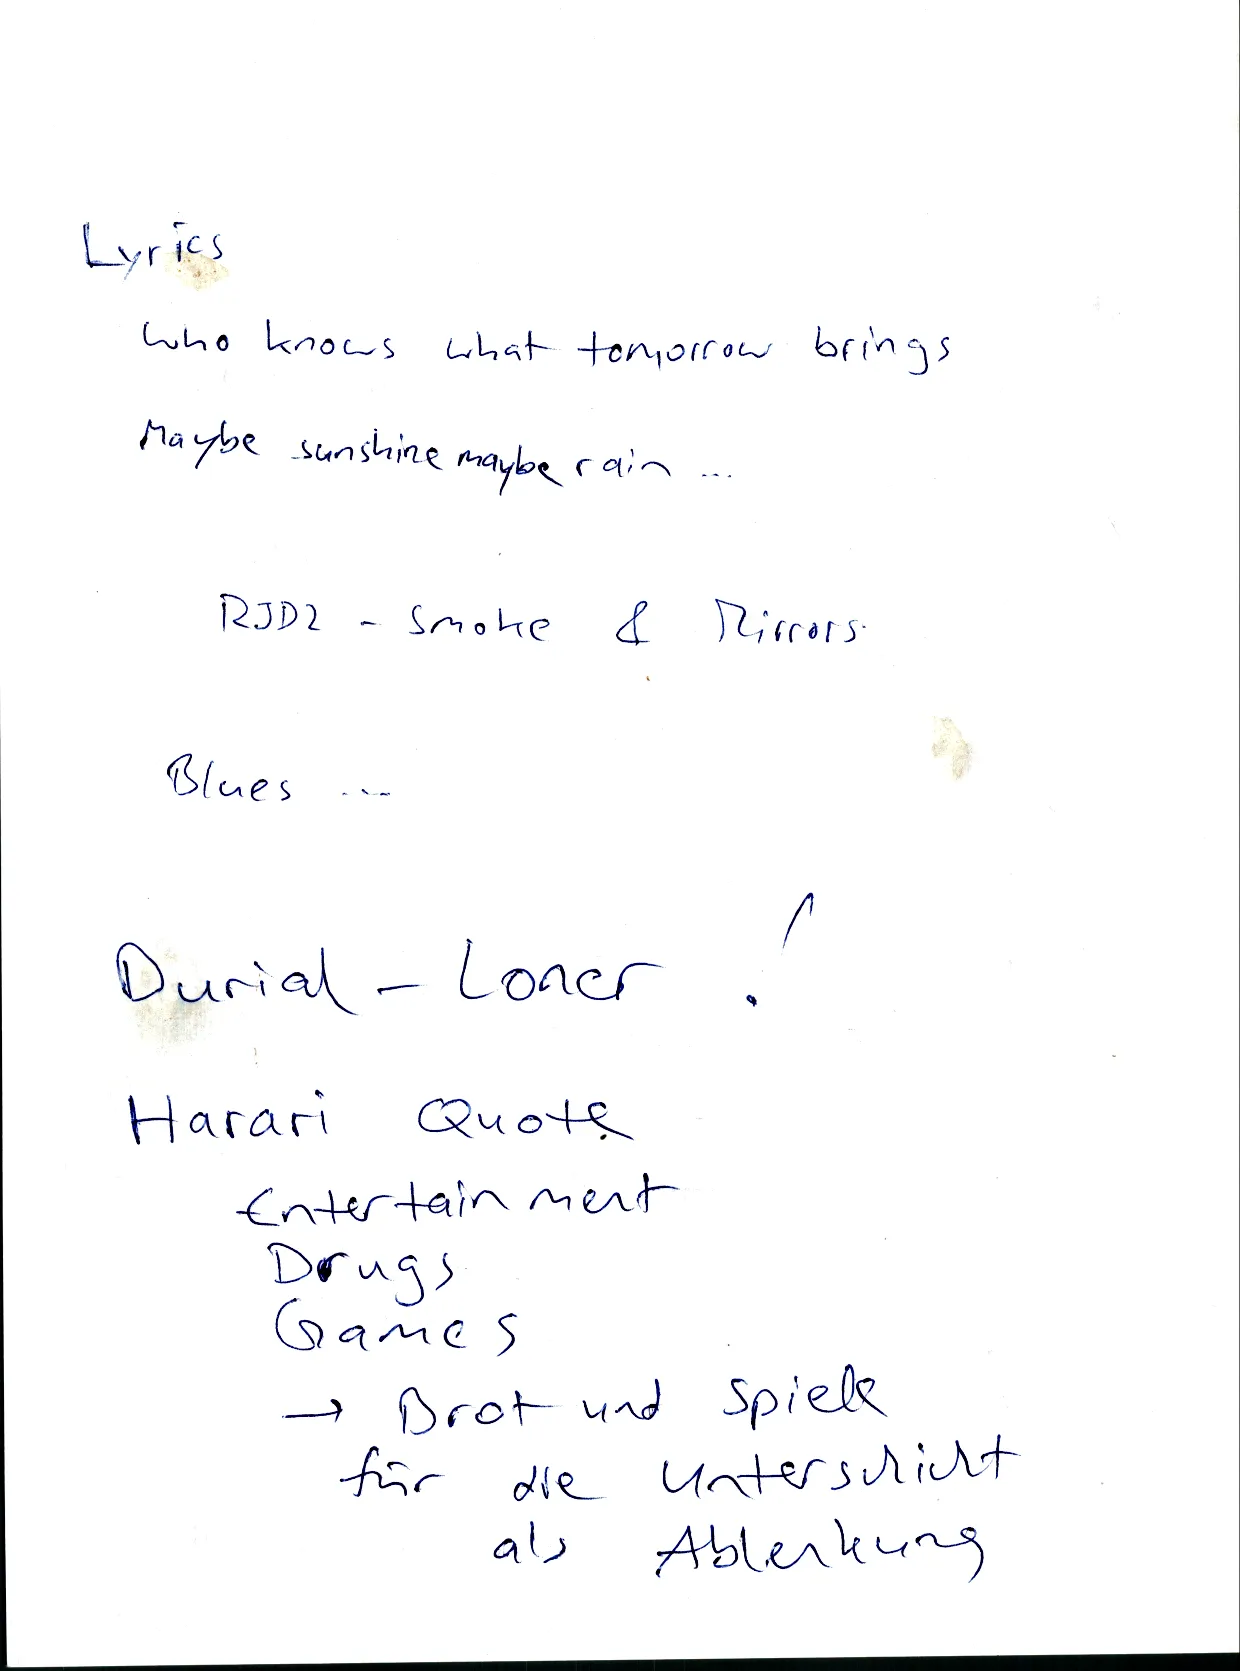 Lyrics
who knows what tomorrow brings
Maybe sunshine maybe rain ...
RJD2 - Smoke & Mirrors
Blues ...
Burial - Loner !
Harari Quote
Entertainment
Drugs
Games
→ Brot und Spiele
für die Unterschicht
als Ablenkung